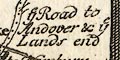 ye Road to
Andover & ye
Lands end